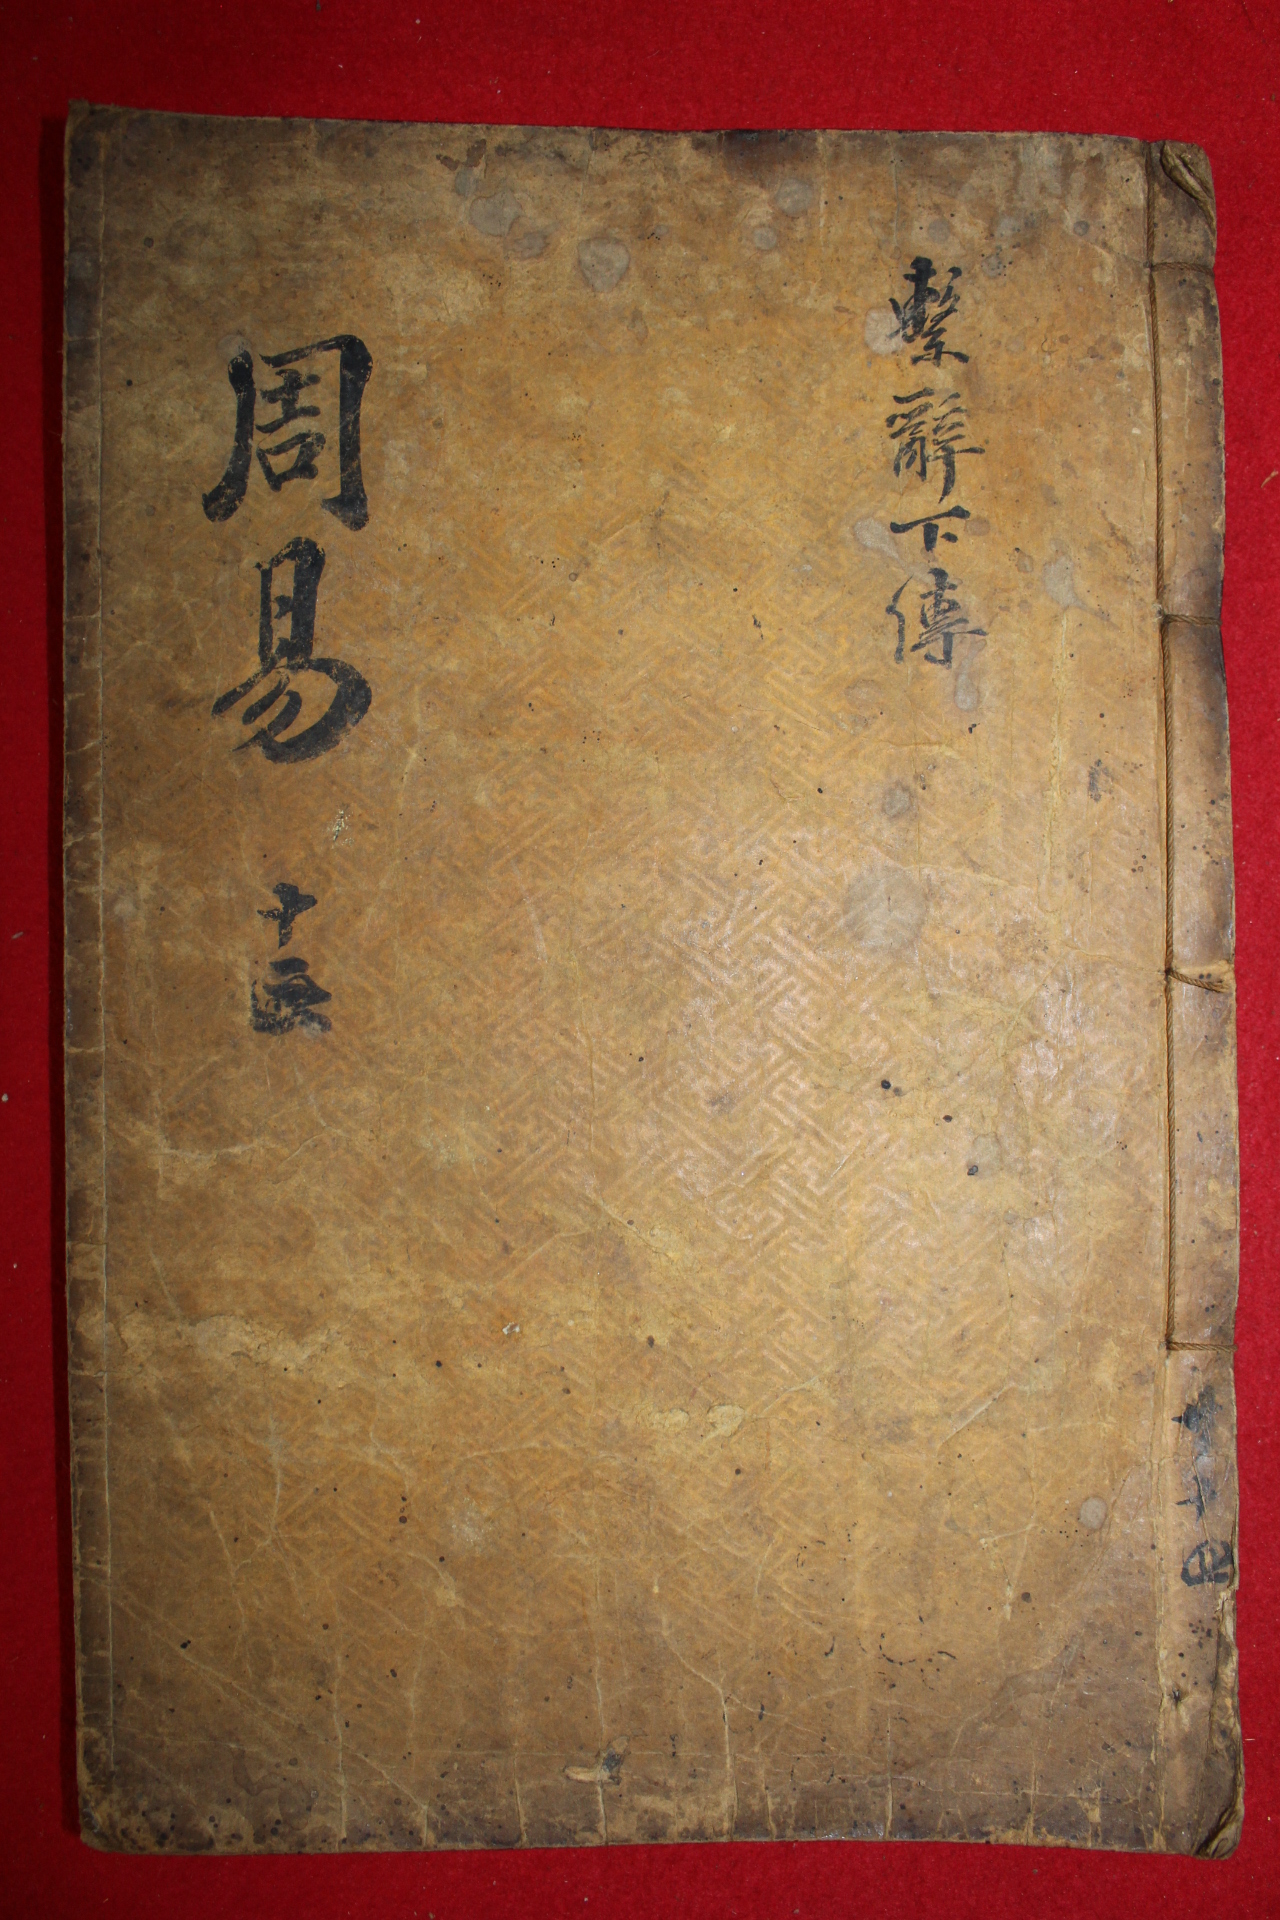 繫辭下傳
周易
十
共十四